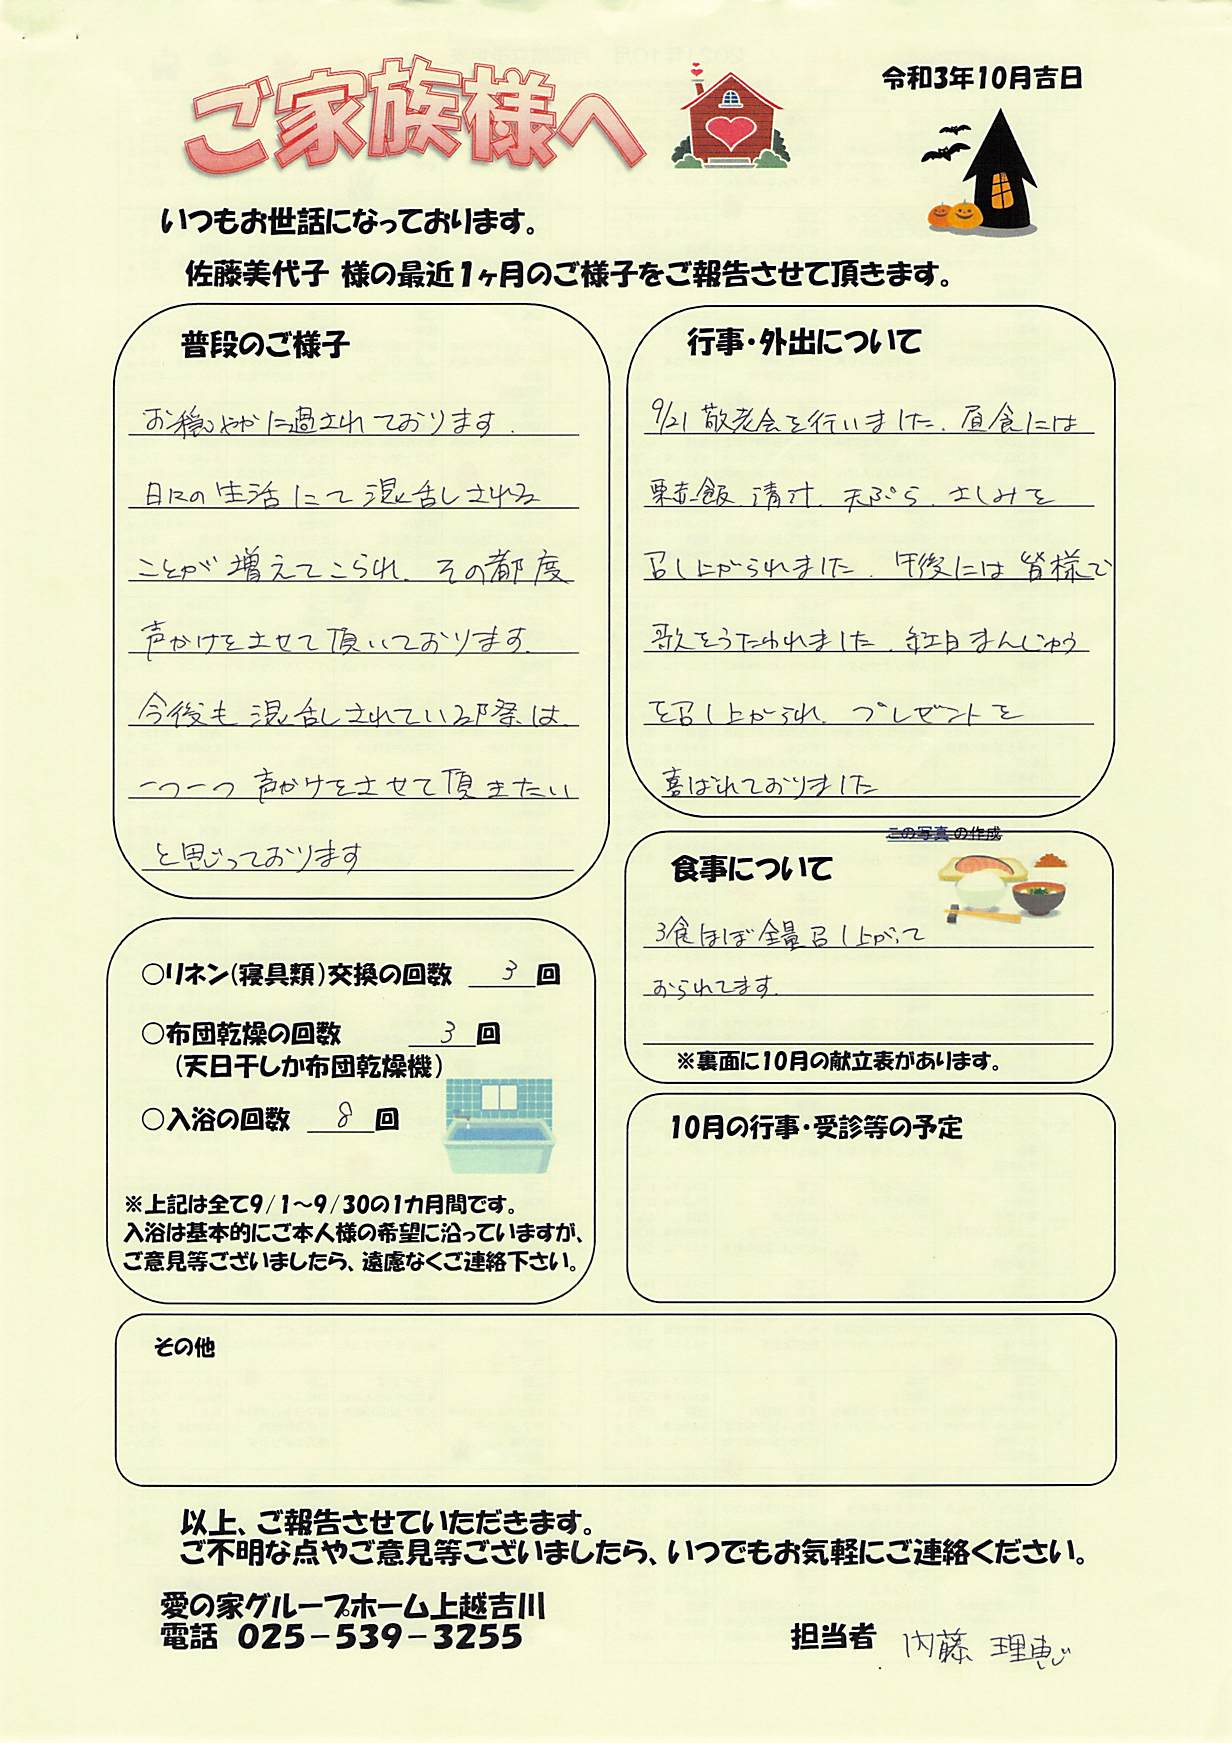 ご家族様へ
令和3年10月吉日
いつもお世話になっております。
佐藤美代子 様の最近1ヶ月のご様子をご報告させて頂きます。
普段のご様子
お穏やかに過されております.
日々の生活にて混乱しされる
ことが増えてこられ、その都度
声かけをさせて頂いております.
今後も混乱しされている際は、
一つ一つ声かけをさせて頂きたい
と思っております
行事・外出について
9/21 敬老会を行いました、昼食には
栗赤飯、清汁、天ぷら、さしみを
召し上がられました、午後には皆様で
歌をうたわれました、紅白まんじゅう
を召し上がられ、プレゼントを
喜ばれておりました
この写真 の作成
食事について
3食ほぼ全量召し上がって
おられてます.
※裏面に10月の献立表があります。
○リネン(寝具類)交換の回数 3 回
○布団乾燥の回数 3 回
(天日干しか布団乾燥機)
○入浴の回数 8 回
※上記は全て9/1～9/30の1カ月間です。
入浴は基本的にご本人様の希望に沿っていますが、
ご意見等ございましたら、遠慮なくご連絡下さい。
10月の行事・受診等の予定
その他
以上、ご報告させていただきます。
ご不明な点やご意見等ございましたら、いつでもお気軽にご連絡ください。
愛の家グループホーム上越吉川
電話 025-539-3255
担当者 内藤 理恵